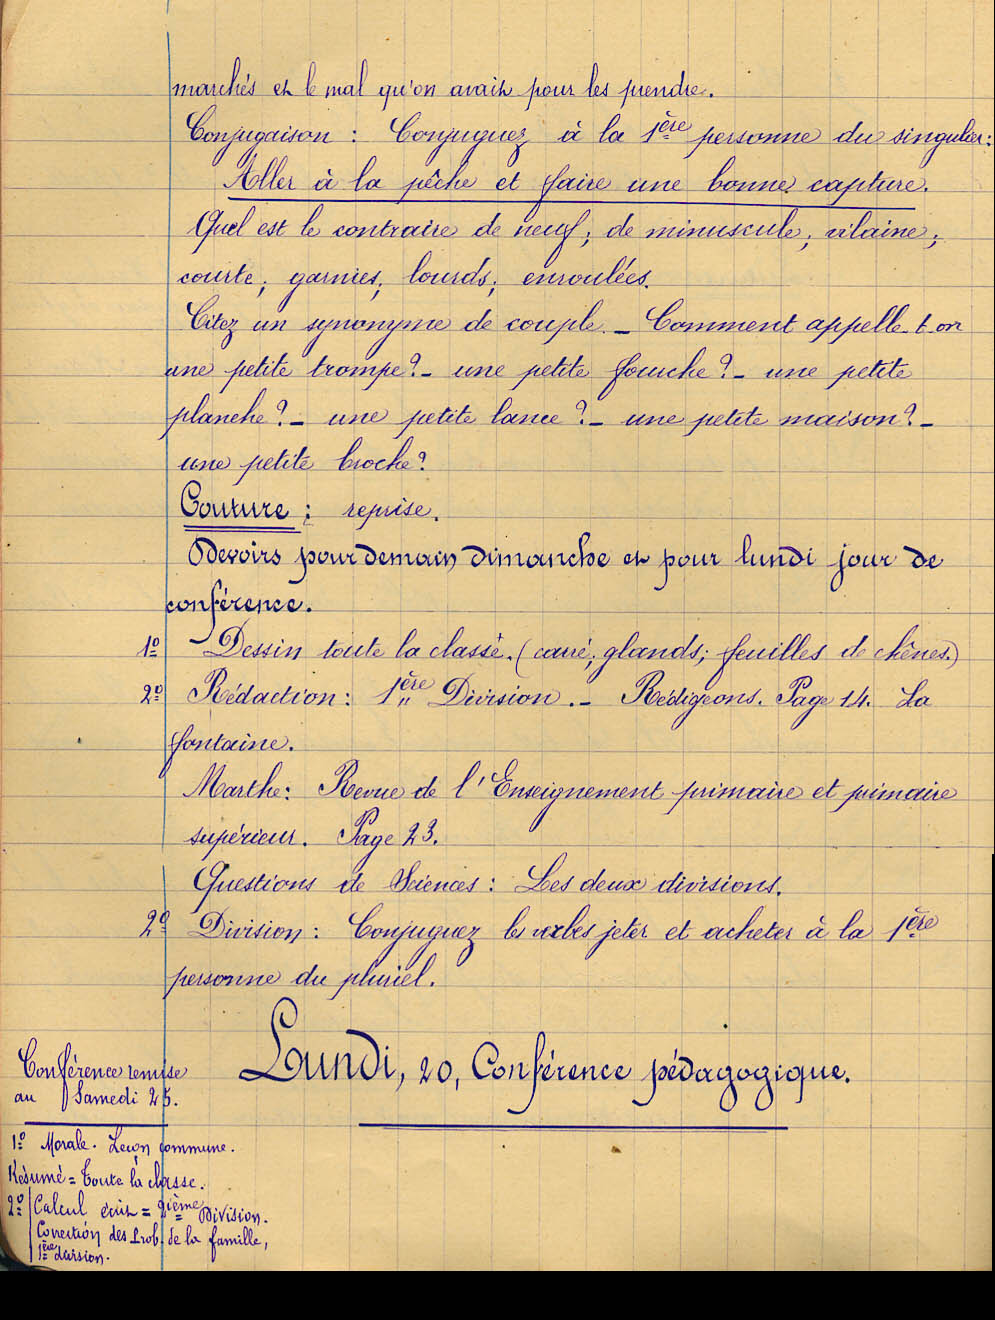 marchés et le mal qu'on avait pour les prendre.
Conjugaison : Conjuguez à la 1ère personne du singulier :
Aller à la pêche et faire une bonne capture.
Quel est le contraire de neuf ; de minuscule ; vilaine ;
courte ; garnies ; lourds ; enroulées.
Citez un synonyme de couple. - Comment appelle-t-on
une petite trompe ? - une petite fourche ? - une petite
planche ? - une petite lance ? - une petite maison ? -
une petite broche ?
Couture : reprise.
Devoirs pour demain dimanche et pour lundi jour de
conférence.
1º Dessin toute la classe. (carré ; glands ; feuilles de chênes.)
2º Rédaction : 1ère Division. - Rédigeons. Page 14. La
fontaine.
Marthe : Revue de l'Enseignement primaire et primaire
supérieur. Page 23.
Questions de Sciences : Les deux divisions.
2º Division : Conjuguez les verbes jeter et acheter à la 1ère
personne du pluriel.
Lundi, 20, Conférence pédagogique.
Conférence remise
au Samedi 25.
1º Morale. Leçon commune.
Résumé = Toute la classe.
2º Calcul écrit = 2ième Division.
Correction des Prob. de la famille,
1ère division.